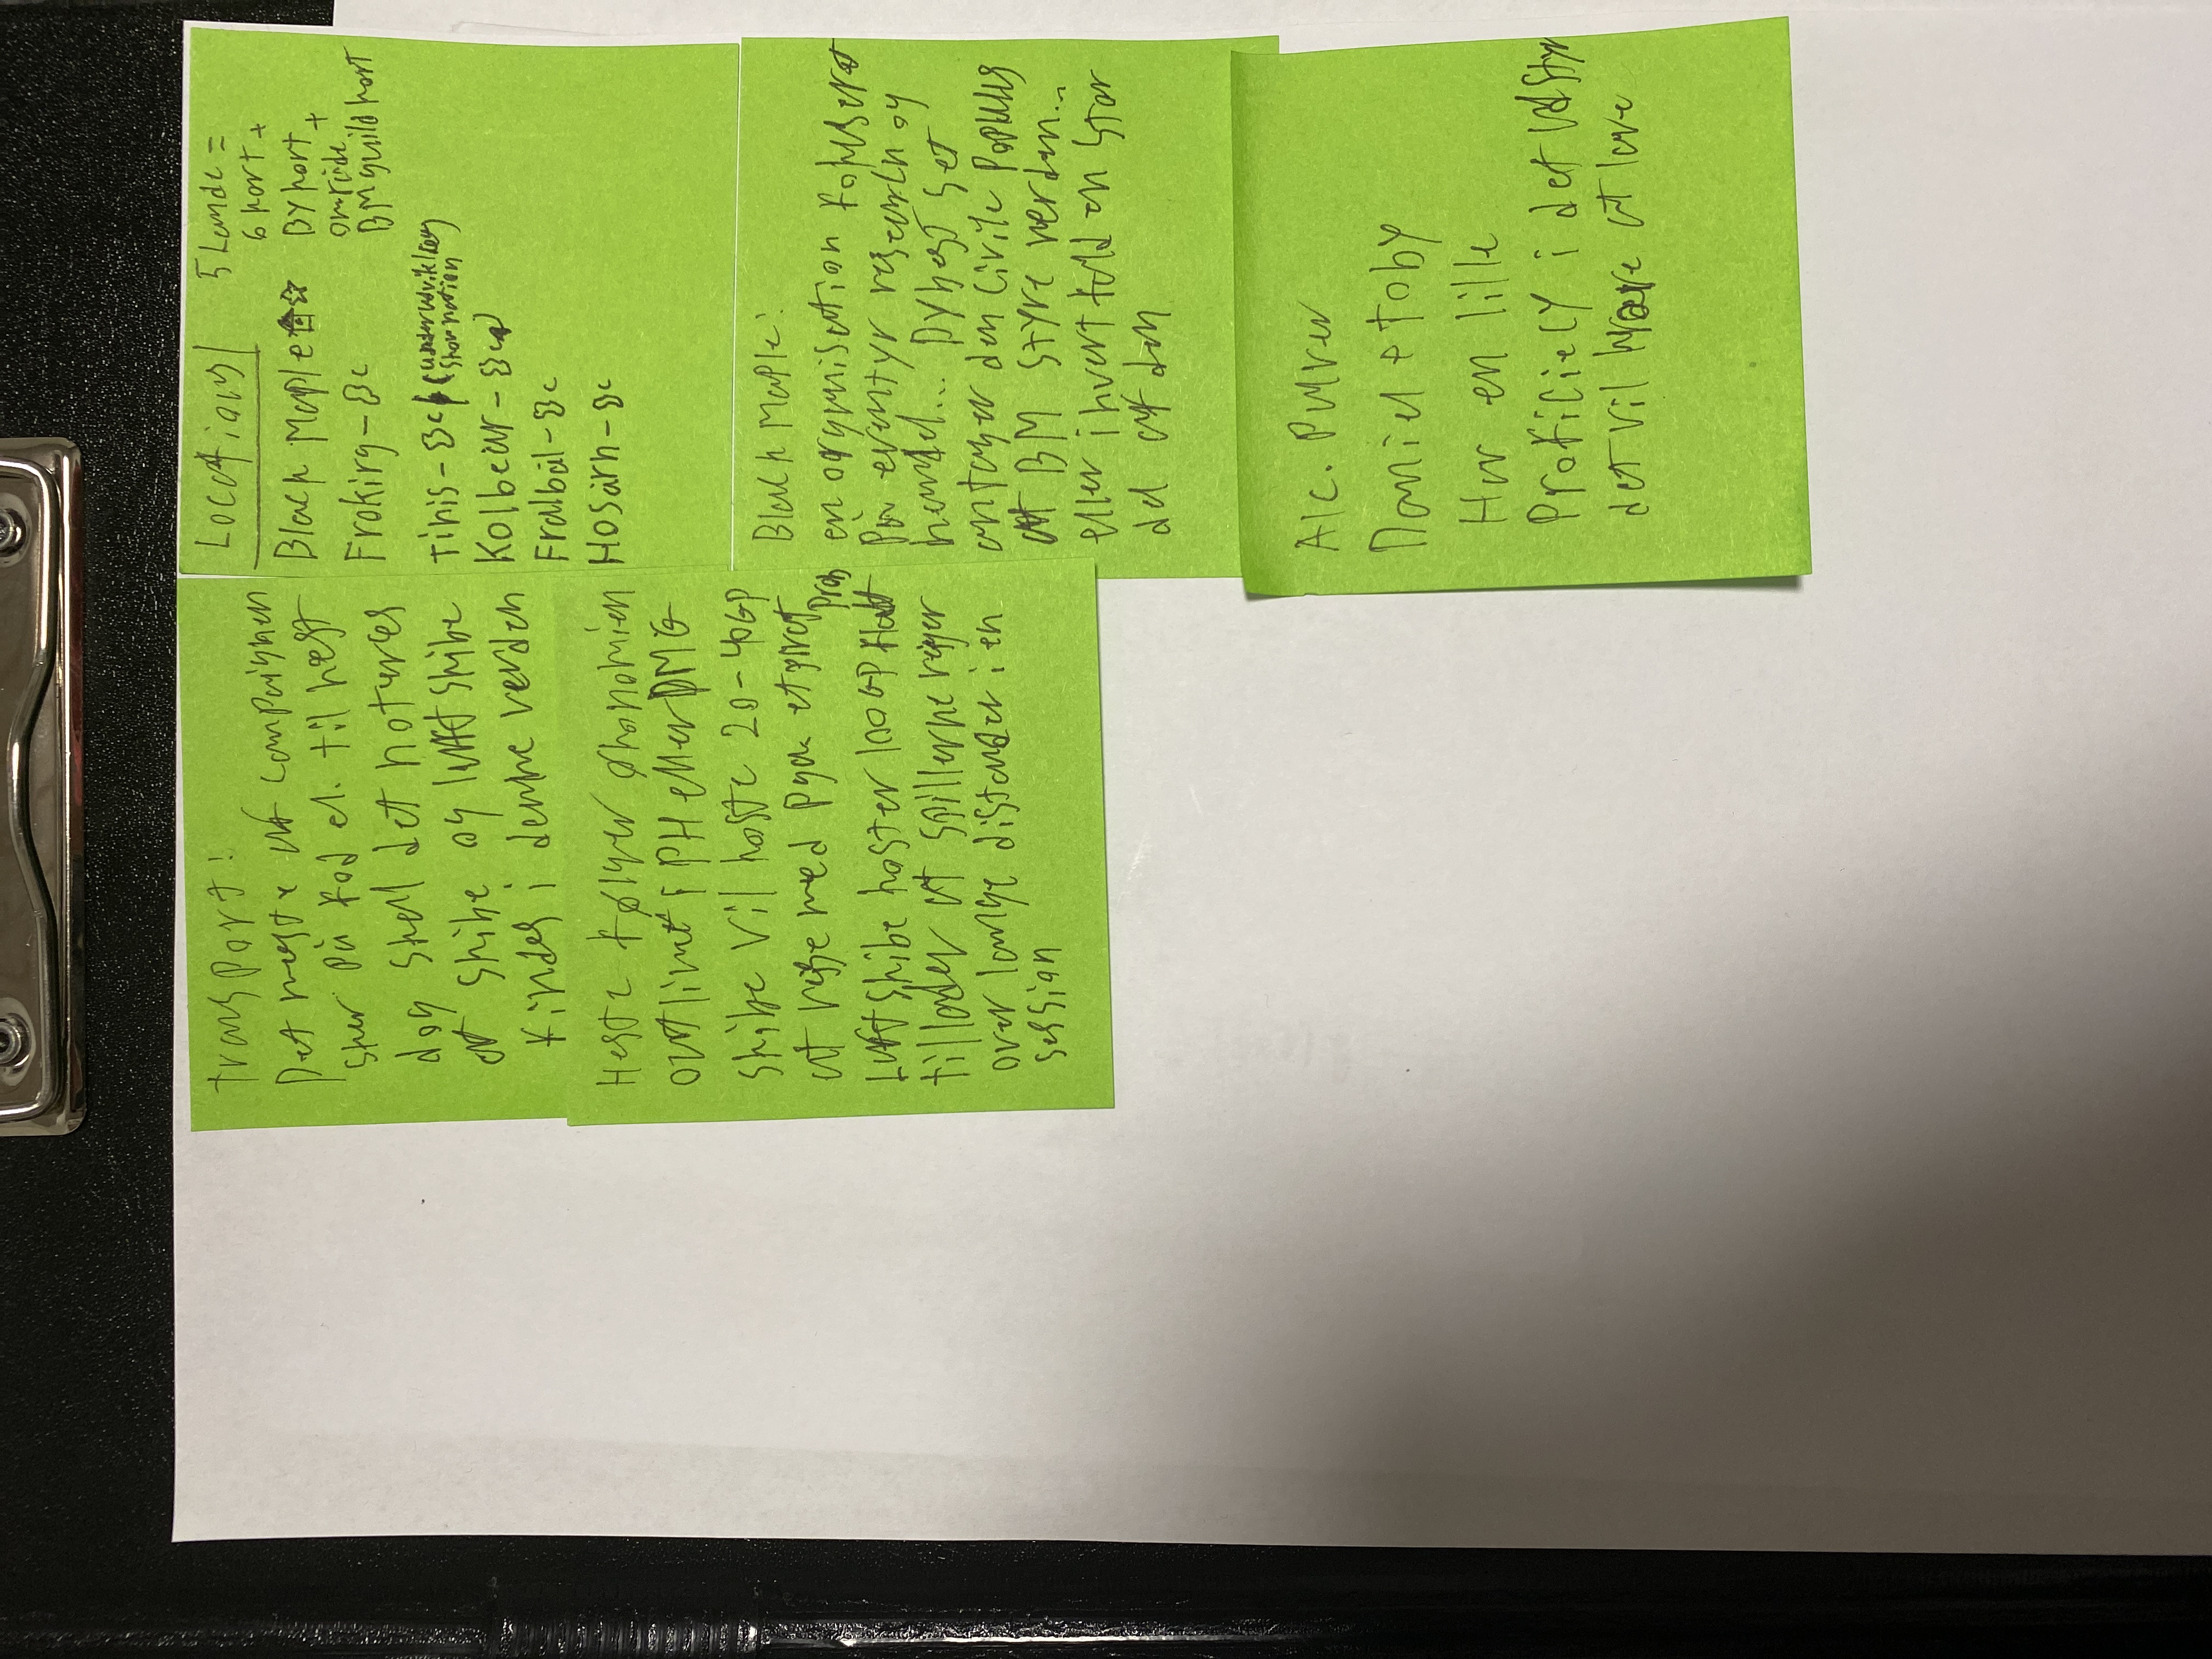 Transport!
Det meste af campaignen
sker på fod el. til hest
dog skal det noteres
at skibe og luftskibe
findes i denne verden
Heste følger økonomien
i PH eller DMG
Skibe vil koste 20-40GP
at rejse med pga. et pirat
prob
Luftskibe koster 100GP
tillader at spillerne rejser
over lange distancer i en
session
Locations
5 Lande =
6 kort +
By kort +
område
BM guild kort
Black Maple
Frokirg -
Tinis - (underudviklet
stornation)
Kolbeár -
Fralbál -
Hosárn -
Black Maple:
en organisation fokuseret
På eventyr research og
handel... Dybest set
antager den civile Populus
at BM styre verden...
eller i hvert fald en stor
del af den
Alc. Pulver
Daniel + toby
Har en lille
Proficiecy i det udstyr
det vil kræve at lave